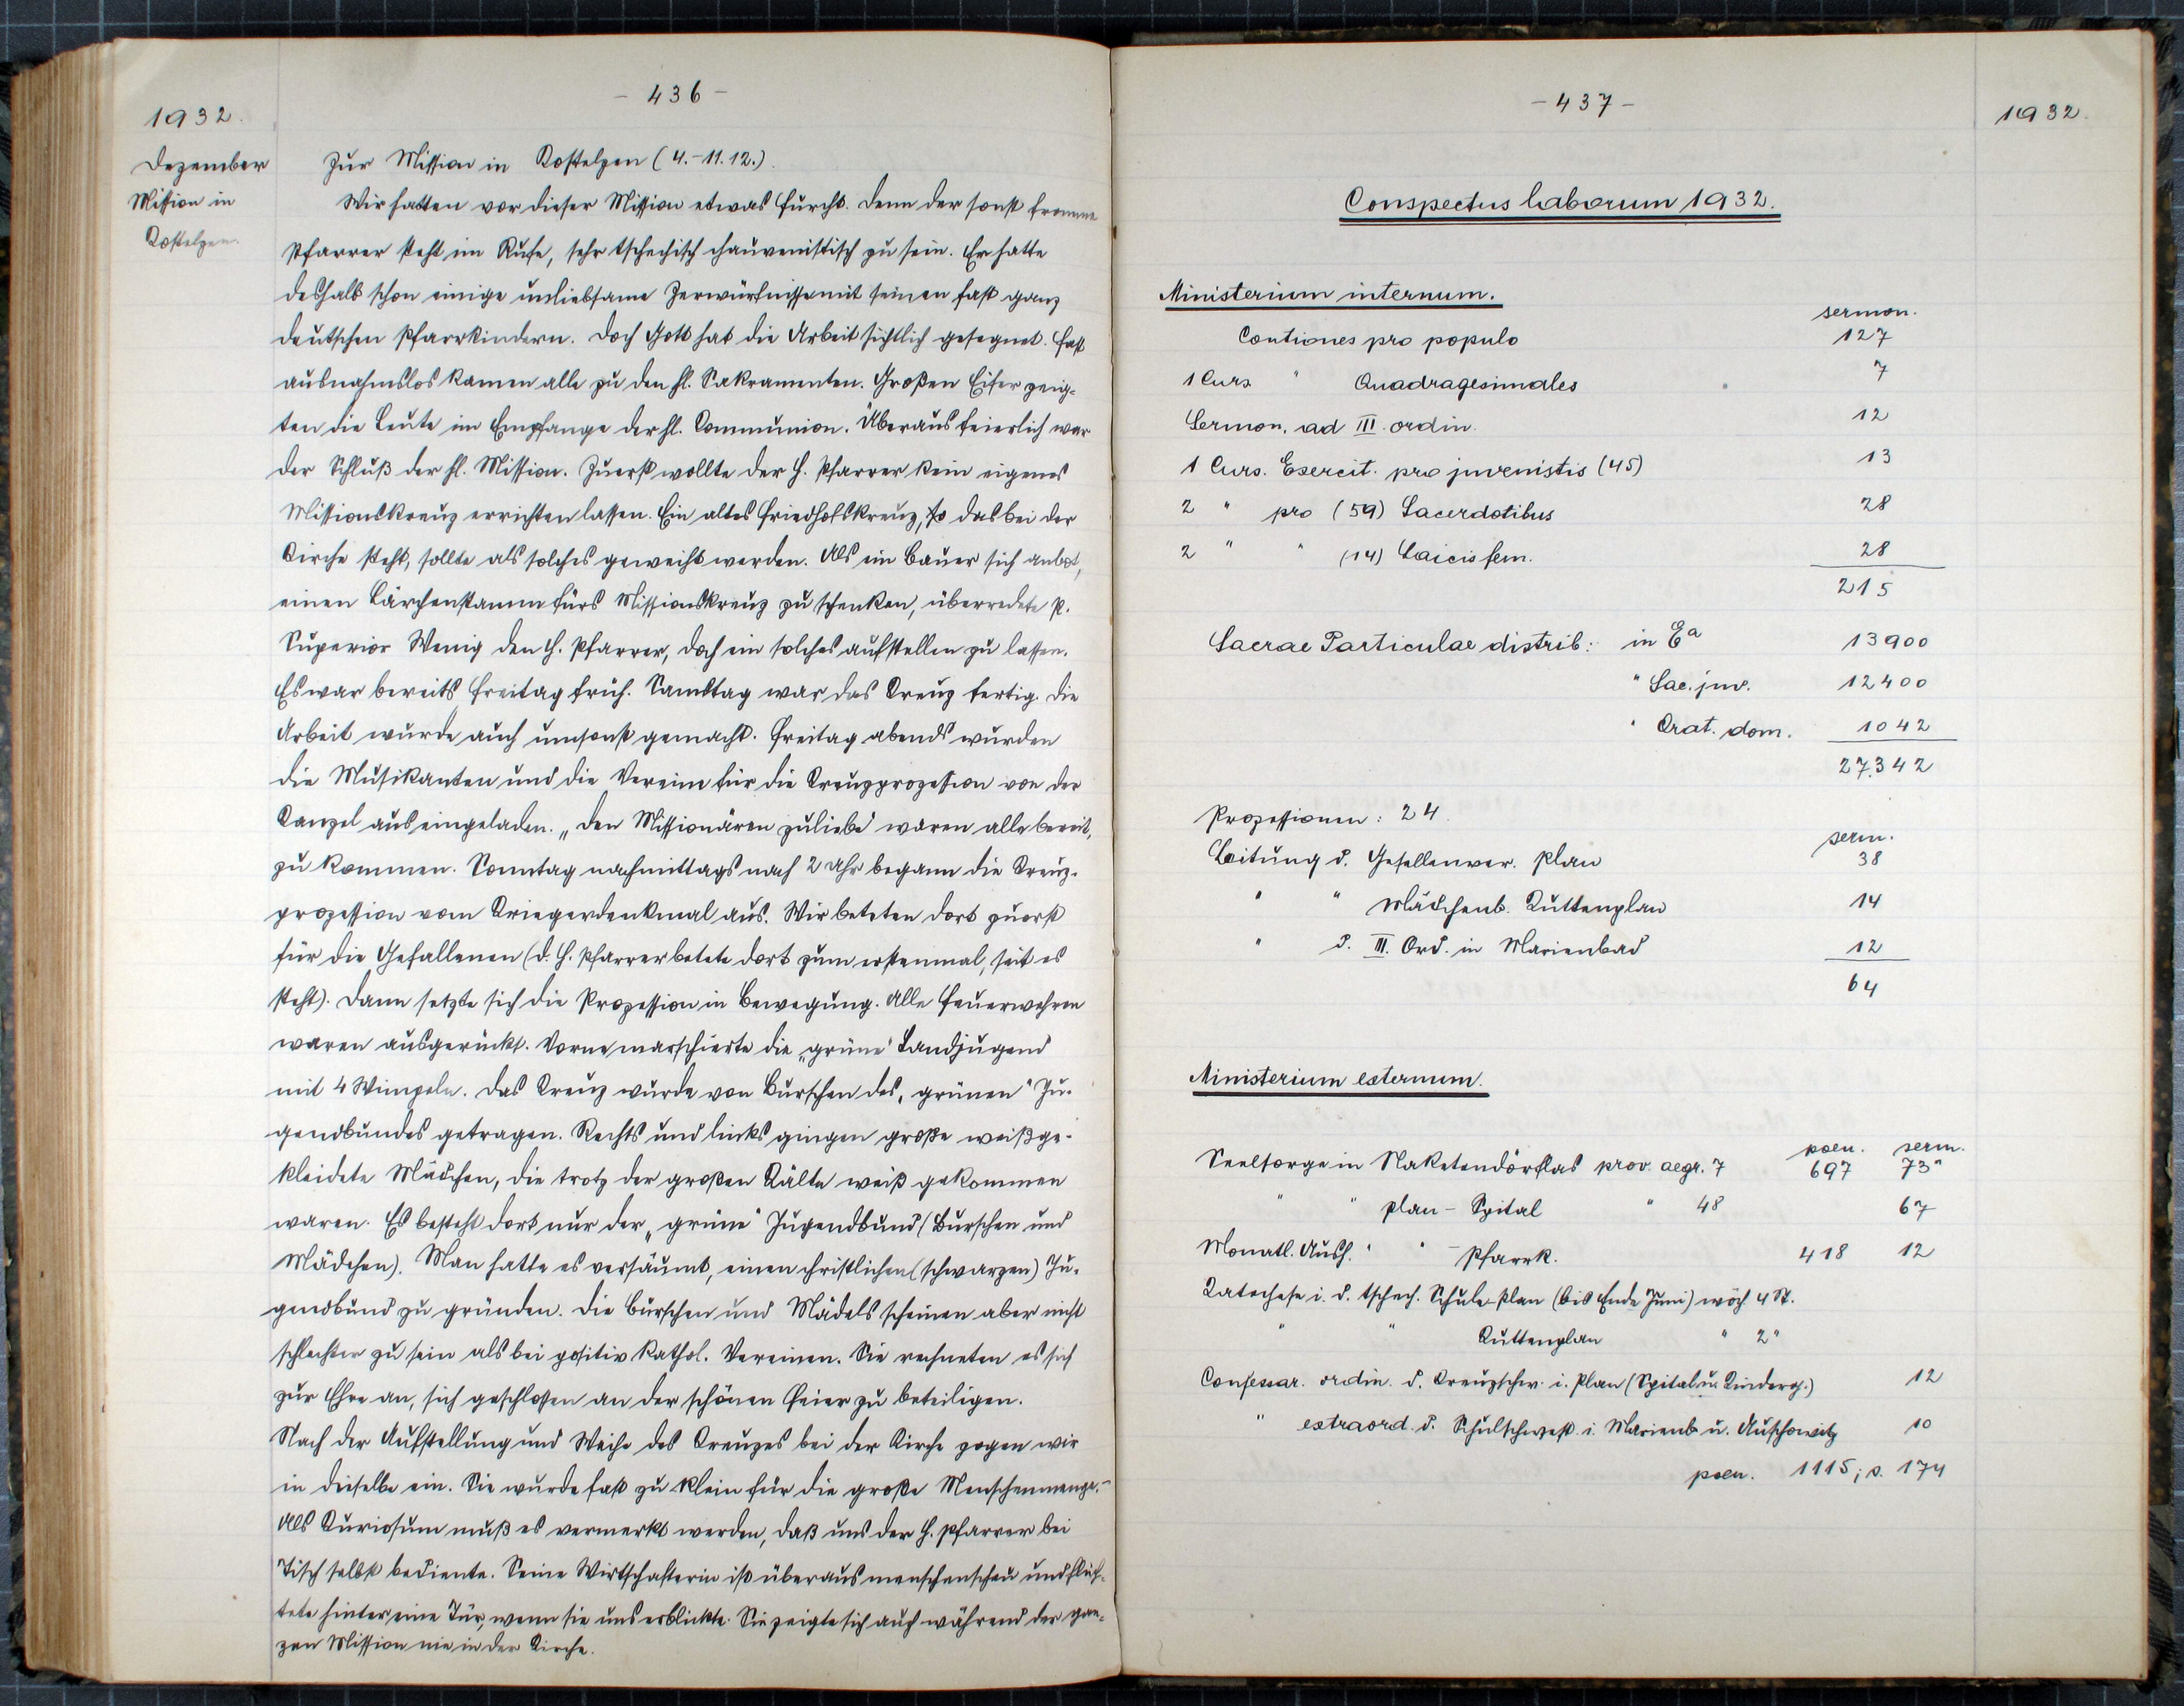 - 436 -
1932.
Dezember
Mission in
Kostelzen.
Zur Mission in Kostelzen (4.-11.12.).
Wir hatten vor dieser Mission etwas Furcht. Denn der sonst fromme
Pfarrer steht im Rufe, sehr tschechisch chauvenistisch zu sein. Er hatte
deshalb schon einige unliebsame Zerwürfnisse mit seinen fast ganz
deutschen Pfarrkindern. Doch Gott hat die Arbeit sichtlich gesegnet. Fast
ausnahmslos kamen alle zu den hl. Sakramenten. Großen Eifer zeig-
ten die Leute im Empfange der hl. Communion. Überaus feierlich war
der Schluß der hl. Mission. Zuerst wollte der H. Pfarrer kein eigenes
Missionskreuz errichten lassen. Ein altes Friedhofskreuz, das bei der
Kirche steht, sollte als solches geweiht werden. Als ein Bauer sich anbot,
einen Lärchenstamm fürs Missionskreuz zu schenken, überredete P.
Superior Wenig den H. Pfarrer, doch ein solches aufstellen zu lassen.
Es war bereits Freitag früh. Samstag war das Kreuz fertig. Die
Arbeit wurde auch umsonst gemacht. Freitag abends wurden
die Musikanten und die Vereine für die Kreuzprozession von der
Kanzel aus eingeladen. „Den Missionären zuliebe" waren alle bereit,
zu kommen. Sonntag nachmittags nach 2 Uhr begann die Kreuz-
prozession vom Kriegerdenkmal aus. Wir beteten dort zuerst
für die Gefallenen (d. H. Pfarrer betete dort zum erstenmal, seit es
steht). Dann setzte sich die Prozession in Bewegung. Alle Feuerwehren
waren ausgerückt. Vorne marschierte die „grüne" Landjugend
mit 4 Wimpeln. Das Kreuz wurde von Burschen des „grünen" Ju-
gendbundes getragen. Rechts und links gingen große weißge-
kleidete Mädchen, die trotz der großen Kälte weiß gekommen
waren. Es besteht dort nur der „grüne" Jugendbund (Burschen und
Mädchen). Man hatte es versäumt, einen christlichen (schwarzen) Ju-
gendbund zu gründen. Die Burschen und Mädels scheinen aber nicht
schlechter zu sein als bei positiv kathol. Vereinen. Sie rechneten es sich
zur Ehre an, sich geschlossen an der schönen Feier zu beteiligen.
Nach der Aufstellung und Weihe des Kreuzes bei der Kirche zogen wir
in dieselbe ein. Sie wurde fast zu klein für die große Menschenmenge. -
Als Kuriosum muß es vermerkt werden, daß uns der H. Pfarrer bei
Tisch selbst bediente. Seine Wirtschafterin ist überaus menschenscheu und flüch-
tete hinter eine Tür, wenn sie uns erblickte. Sie zeigte sich auch während der gan-
zen Mission nie in der Kirche.
- 437 -
1932.
Conspectus laborum 1932.
Ministerium internum.
sermon.
Contiones pro populo 127
1 Curs. " Quadragesimales 7
Sermon. ad III. ordin. 12
1 Curs. Exercit. pro juvenistis (45) 13
2 " pro (59) Sacerdotibus 28
2 " " (14) Laicis fem. 28
215
Sacrae Particulae distrib: in Ea 13900
" Sac. juv. 12400
" Orat. dom. 1042
27342
Prozessionen: 24.
serm.
Leitung d. Gesellenver. Plan 38
" " Mädchenb. Kuttenplan 14
" d. III. Ord. in Marienbad 12
64
Ministerium externum.
poen. serm.
Seelsorge in Naketendörflas prov. aegr. 7 697 73"
" " Plan - Spital " 48 67
Monatl. Aush. " " - Pfarrk. 418 12
Katechese i. d. tschech. Schule Plan (bis Ende Juni) wöch. 4 St.
" " Kuttenplan " 2 "
Confessar. ordin. d. Kreuzschw. i. Plan (Spital u. Kinderg.) 12
" extraord. d. Schulschwest. i. Marienb. u. Auschowitz 10
poen. 1115; s. 174